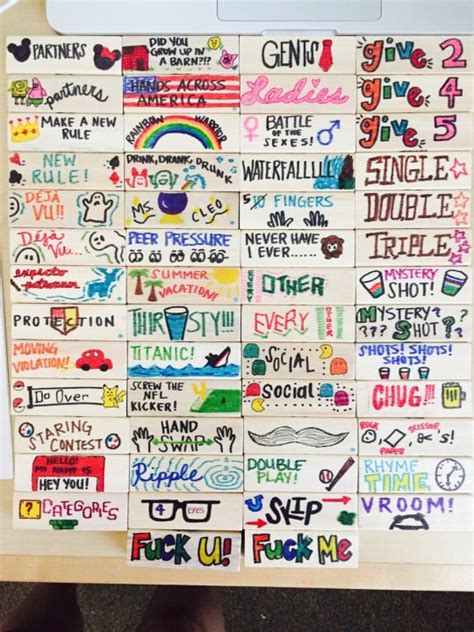 PARTNERS
DID YOU GROW UP IN A BARN?!?
GENTS
give 2
partners
HANDS ACROSS AMERICA
Ladies
give 4
MAKE A NEW RULE
RAINBOW WARRIOR
BATTLE OF THE SEXES!
give 5
NEW RULE!
DRINK, DRANK, DRUNK
WATERFALLLLL
SINGLE
DÉJÀ VU!!
MS. CLEO
FINGERS
DOUBLE
Déjà Vu...
PEER PRESSURE
NEVER HAVE I EVER.....
TRIPLE
expecto patronum
SUMMER VACATION!
OTHER
MYSTERY SHOT!
PROTECTION
THIRSTY!!!
EVERY OTHER
MYSTERY SHOT
???
??
MOVING VIOLATION!
TITANIC!
SOCIAL
SHOTS! SHOTS! SHOTS!
Do Over
SCREW THE NFL KICKER!
Social
CHUG!!!
STARING CONTEST
HAND SWAP
ROCK PAPER SCISSOR
HELLO! MY NAME IS
HEY YOU!
Ripple
DOUBLE PLAY!
RHYME TIME
? CATEGORIES
4 EYES
SKIP
VROOM!
FUCK U!
FUCK ME